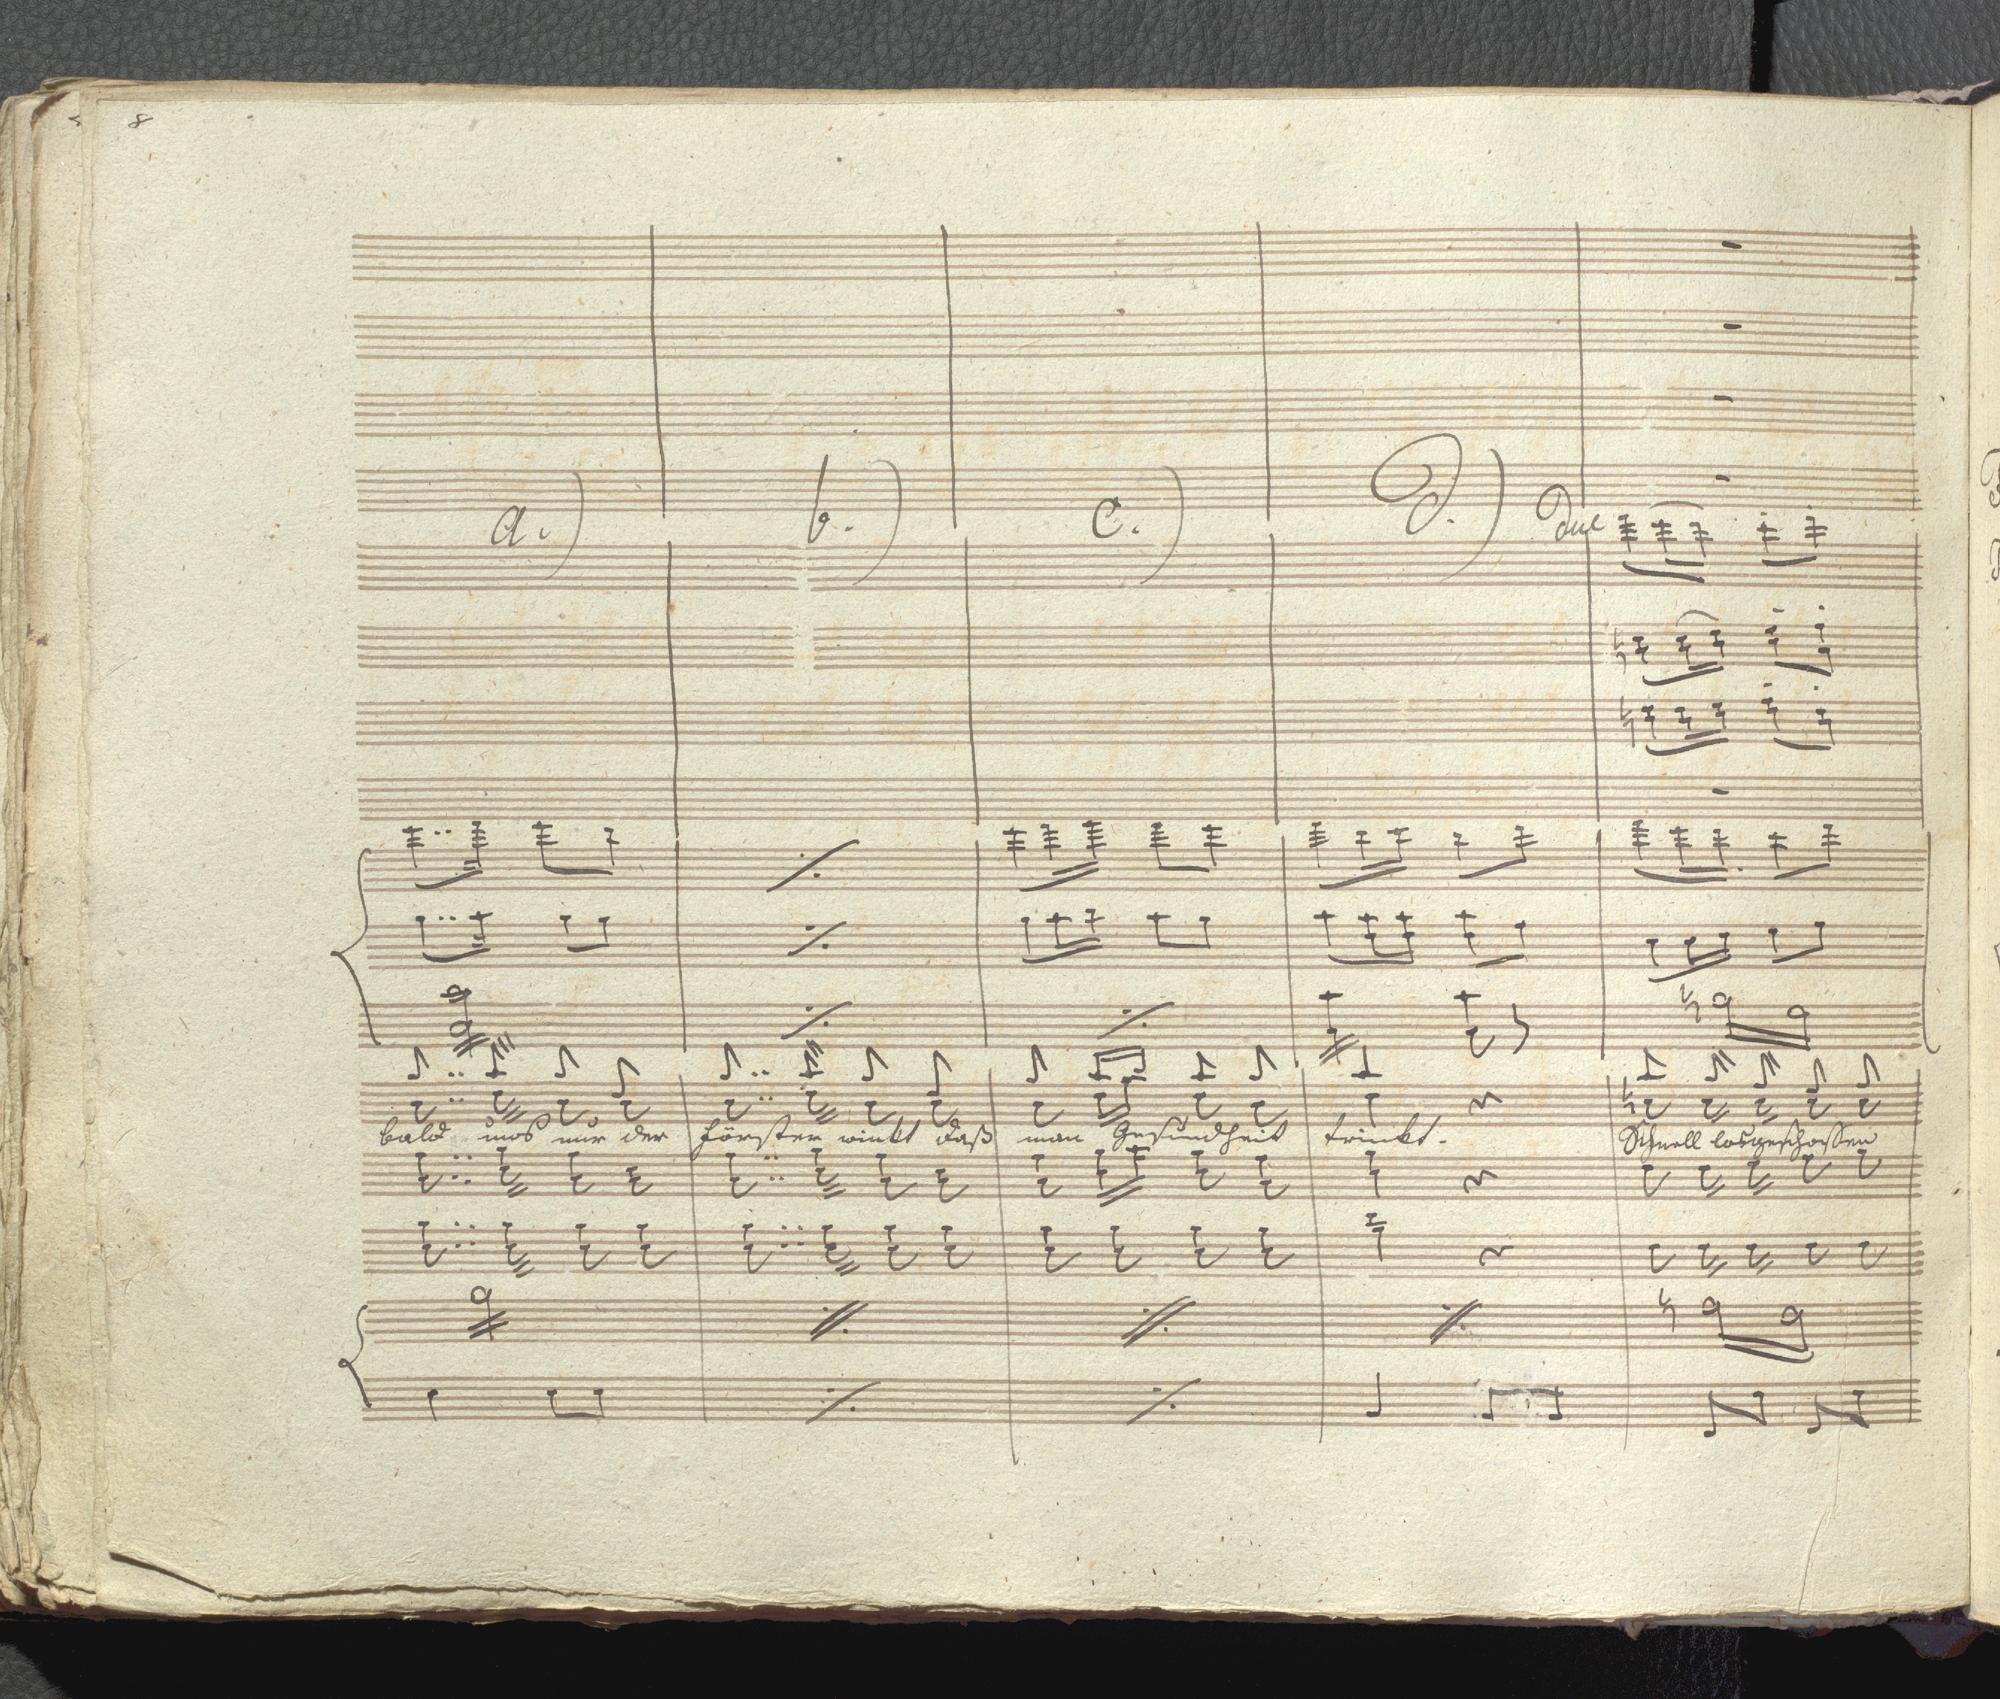 8
a.) b.) c.) d.) Due
bald uns nur der Förster winkt daß man Gesundheit trinkt. Schnell losgeschossen